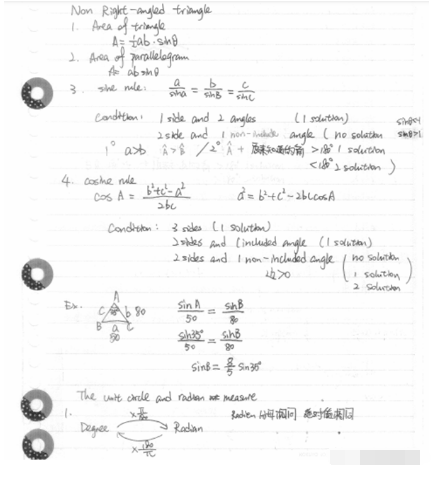 Non Right-angled triangle
1. Area of triangle
A = ½ab·sinθ
2. Area of parallelogram
A = ab sinθ
3. sine rule: a/sinA = b/sinB = c/sinC
Condition: 1 side and 2 angles (1 solution)
2 side and 1 non-include angle (no solution sinθ>1
1° a>b Â>B̂ / 2° Â + >180° 1 solution
<180° 2 solution)
4. cosine rule
cos A = (b²+c²-a²)/2bc a² = b²+c²-2bccosA
Condition: 3 sides (1 solution)
2 sides and 1 included angle (1 solution)
2 sides and 1 non-included angle (no solution
边>0 1 solution
2 solution)
Ex. A
c b 80
B a C
50
sinA/50 = sinB/80
sin35°/50 = sinB/80
sinB = 8/5 sin35°
The unit circle and radian measure
1. ×π/180
Degree Radian
×180/π